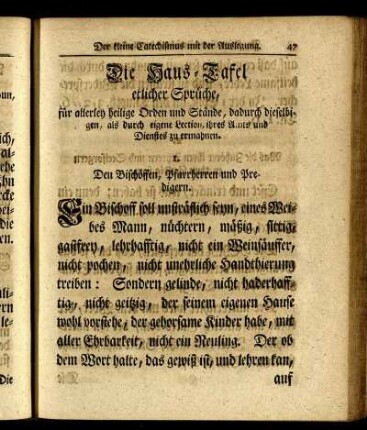 Der kleine Catechismus mit der Auslegung. 47
Die Haus-Tafel
etlicher Sprüche,
für allerley heilige Orden und Stände, dadurch dieselbi-
gen, als durch eigene Lection, ihres Amts und
Dienstes zu ermahnen.
1.
Den Bischöffen, Pfarrherren und Pre-
digern.
Ein Bischoff soll unsträflich seyn, eines Wei-
bes Mann, nüchtern, mäßig, sittig,
gastfrey, lehrhafftig, nicht ein Weinsäuffer,
nicht pochen, nicht unehrliche Handthierung
treiben: Sondern gelinde, nicht haderhaff-
tig, nicht geitzig, der seinem eigenen Hause
wohl vorstehe, der gehorsame Kinder habe, mit
aller Ehrbarkeit, nicht ein Neuling. Der ob
dem Wort halte, das gewiß ist, und lehren kan,
auf
Die